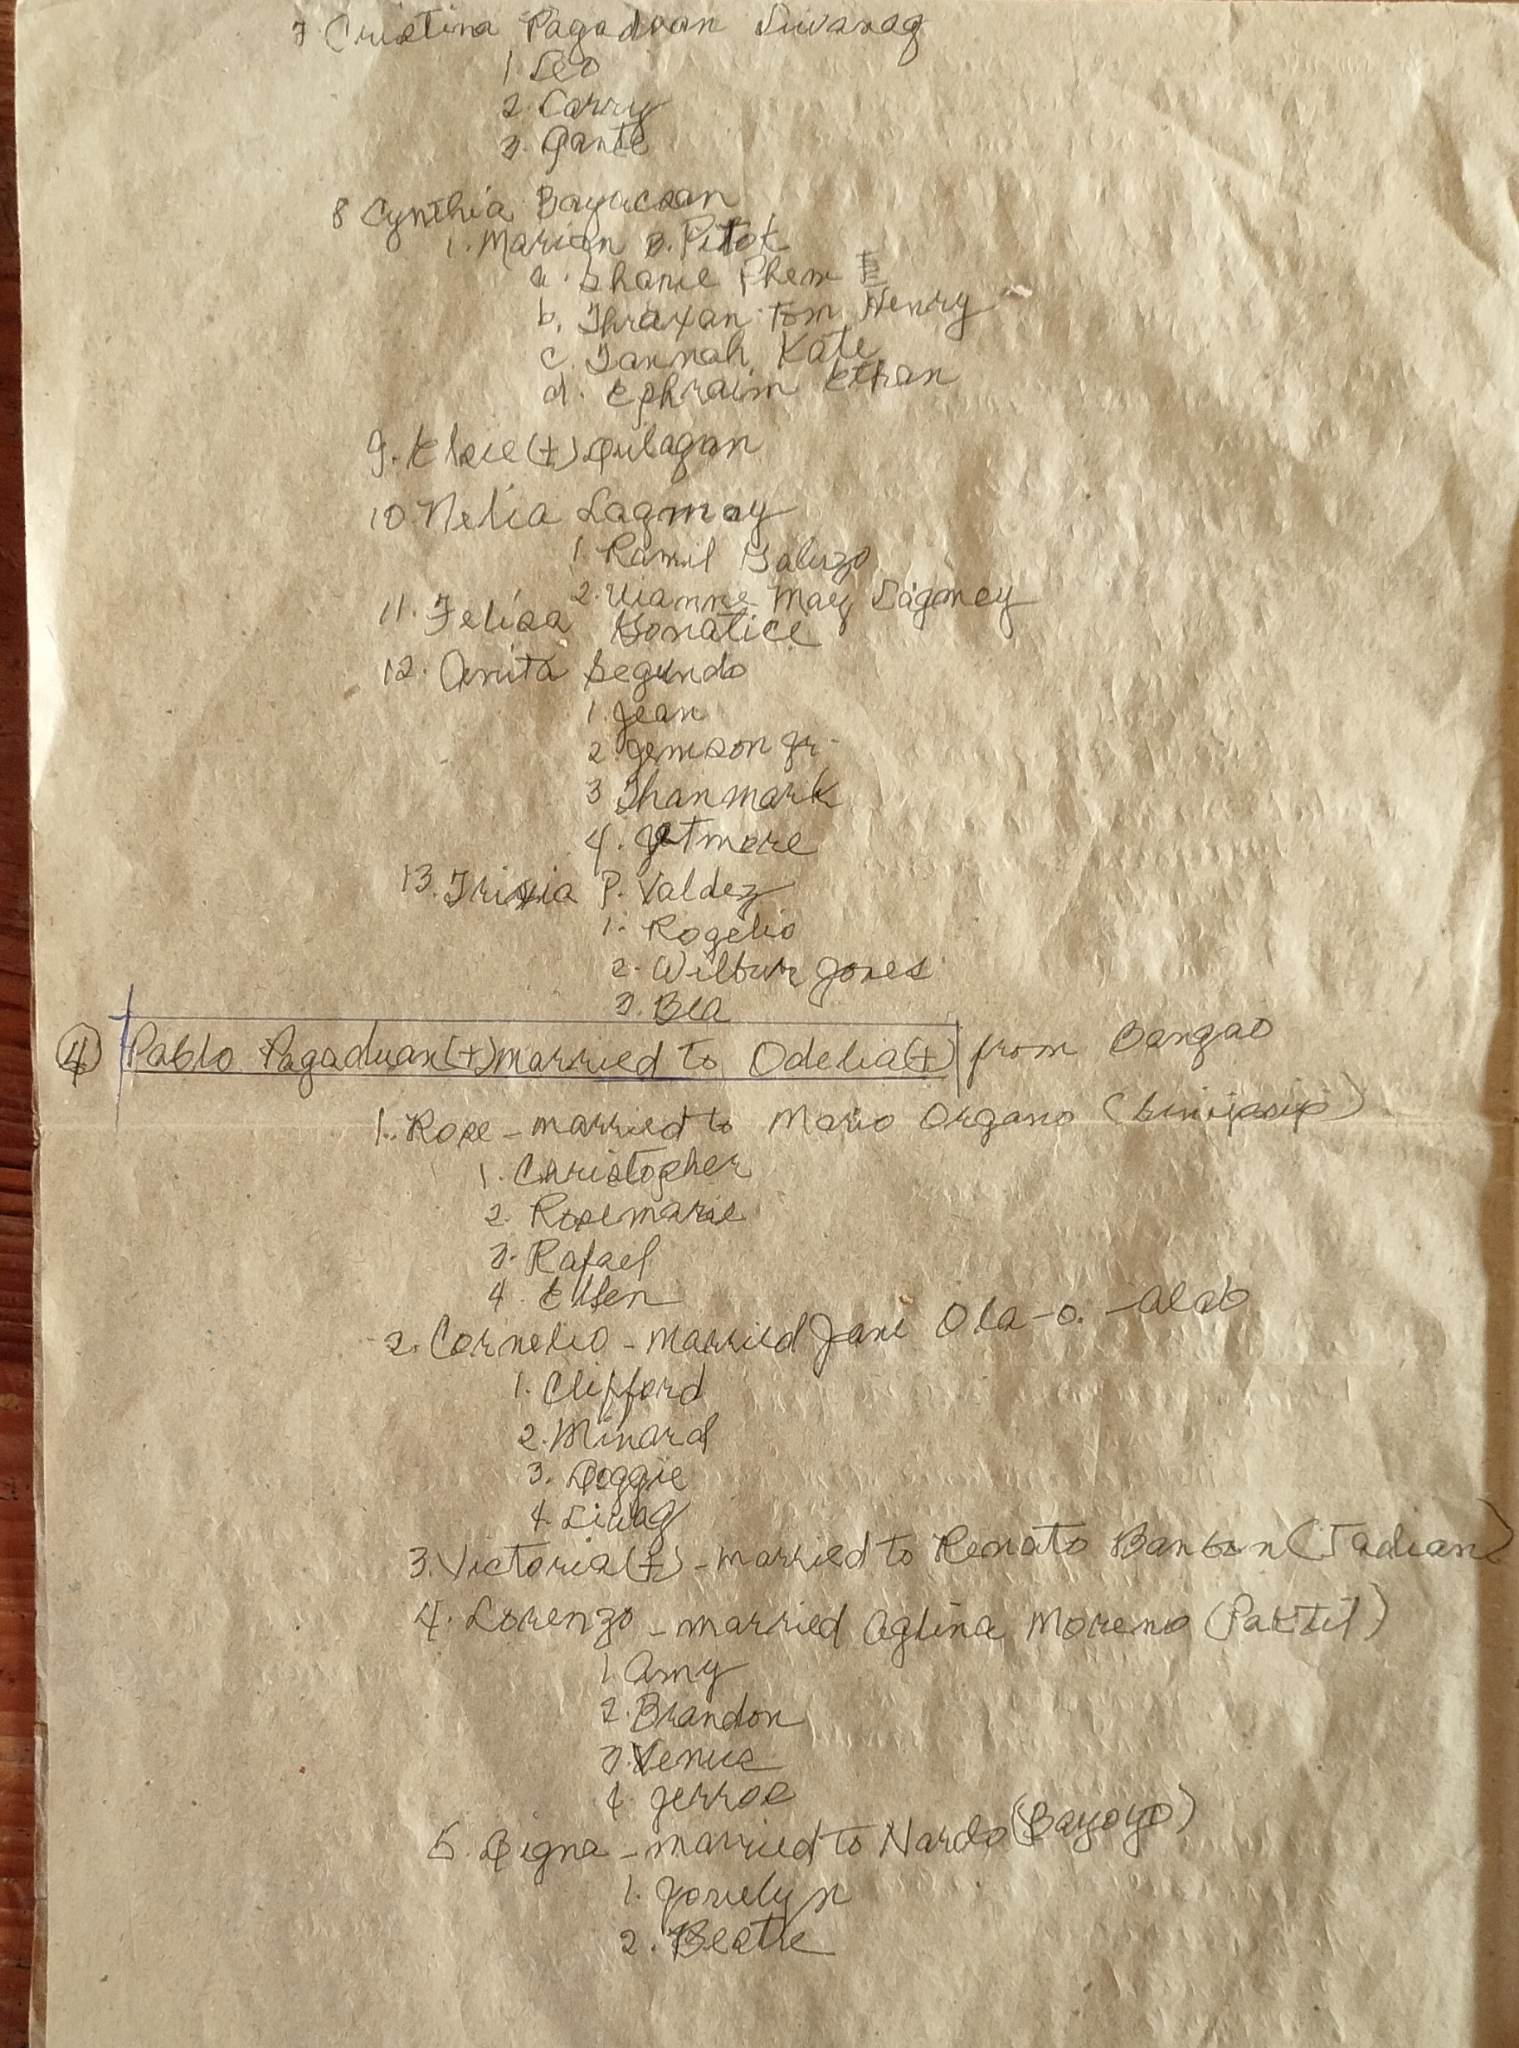 7 Cristina Pagaduan Liwanag
1. Leo
2. Carry
3. Gante
8 Cynthia Bayacsan
1. Marion B. Pitok
a. Shane Phem
b. Thraxan Tom Henry
c. Jannah Kate
d. Ephraim Ethan
9. Elsie (+) Dulagan
10. Nelia Lagmay
1. Ramil Galizo
2. Vianne May Lagmay
11. Felisa Bonatice
12. Anita Segundo
1. Jean
2. Jemson Jr.
3 Thanmark
4. Jetmore
13. Trisia P. Valdez
1. Rogelio
2. Wilbur Jones
3. Bea
4 Pablo Pagaduan (+) married to Odelia (+) from Bangao
1. Rose - married to Mario Organo
1. Christopher
2. Rosemarie
3. Rafael
4. Ellen
2. Cornelio - married Jane Ola-o. - Alab
1. Clifford
2. Minard
3. Doggie
4. Liwag
3. Victoria (+) - married to Renato (Tadian)
4. Lorenzo - married Aglina Moreno (Paktil)
1. Amy
2. Brandon
3. Venus
4. Jerros
5. Digna - married to Nardo (Bayoyo)
1. Jovelyn
2. Beatie